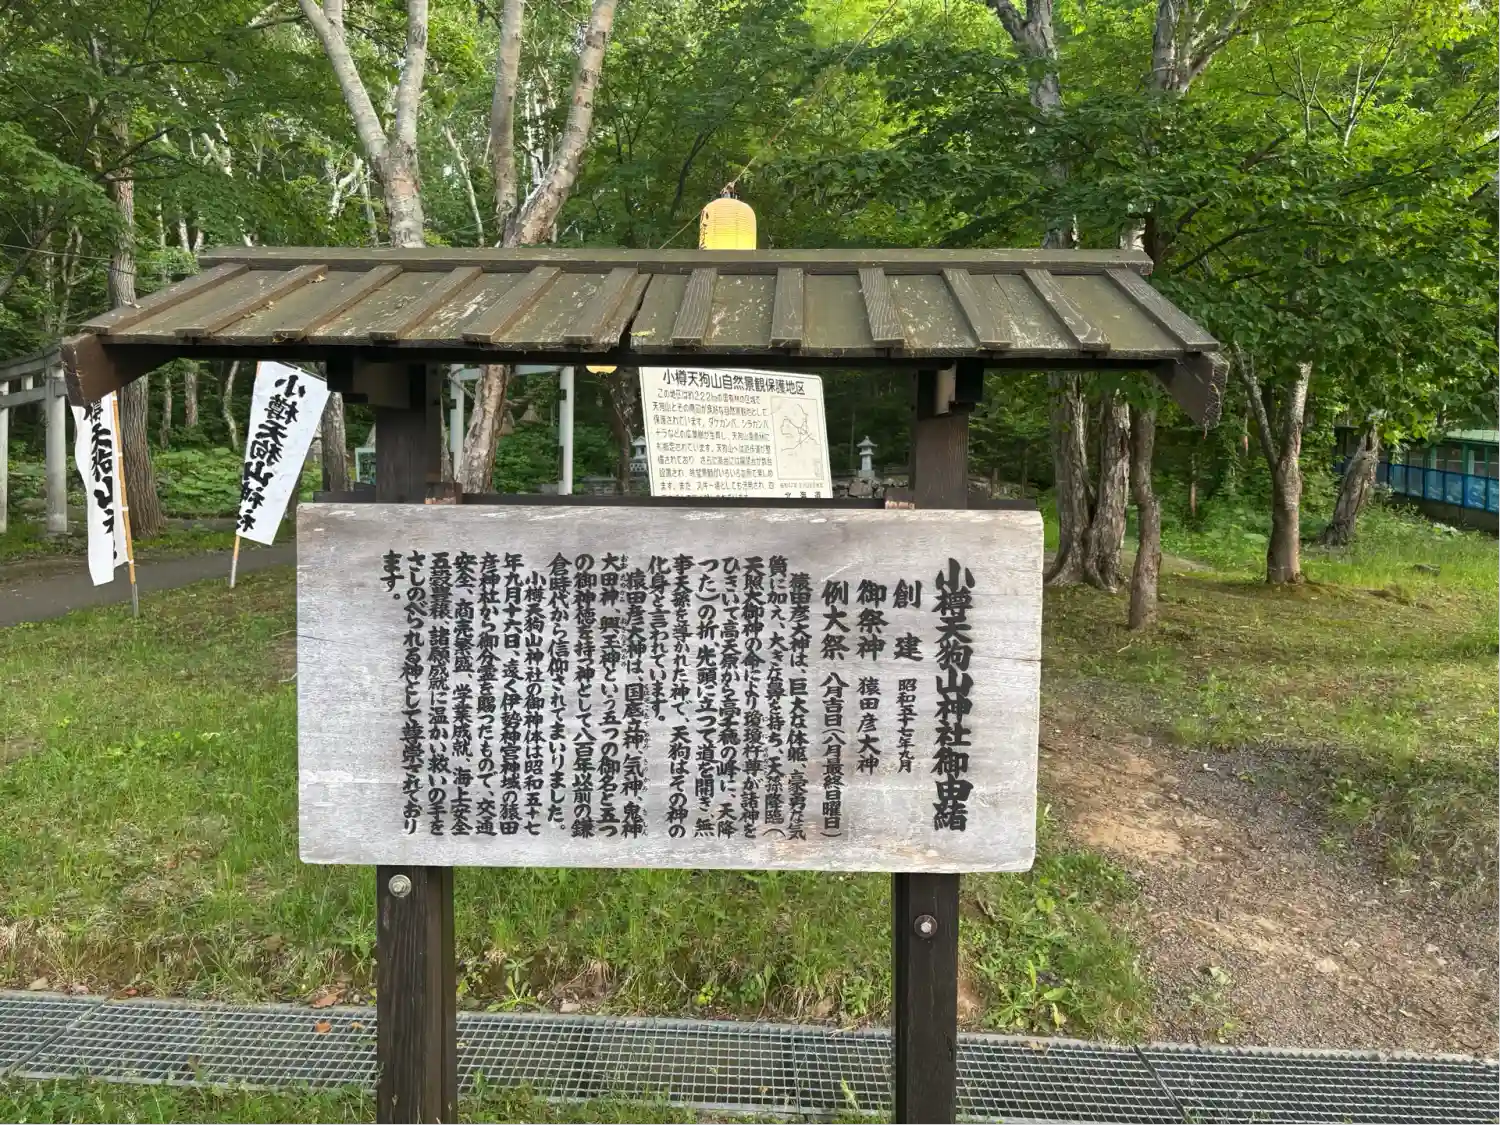 小樽天狗山神社御由緒
創建 昭和五十七年九月
御祭神 猿田彦大神
例大祭 八月吉日(八月最終日曜日)
猿田彦大神は、巨大な体躯、豪勇な気
質に加え、大きな鼻を持ち、天孫降臨(
天照大御神の命により瓊瓊杵尊が諸神を
ひきいて高天原から高千穂の峰に、天降
つた)の折、先頭に立つて道を開き、無
事天孫を導かれた神で、天狗はその神の
化身と言われています。
猿田彦大神は、国底立神、気神、鬼神
大田神、興玉神という五つの御名と五つ
の御神徳を持つ神として八百年以前の鎌
倉時代から信仰されてまいりました。
小樽天狗山神社の御神体は昭和五十七
年九月十六日、遠く伊勢神宮神域の猿田
彦神社から御分霊を賜つたもので、交通
安全、商売繁盛、学業成就、海上安全
五穀豊穣、諸願成就に温かい救いの手を
さしのべられる神として尊崇されており
ます。
小樽天狗山自然景観保護地区
この地区は約222haの国有林の区域で
天狗山とその周辺が良好な自然景観地として
保護されています。ダケカンバ、シラカンバ
北海道
小樽天狗山神社
樽天狗山